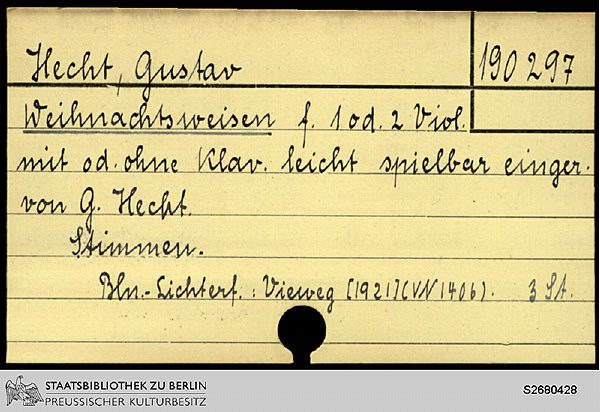 Hecht, Gustav
190 297
Weihnachtsweisen f. 1 od. 2 Viol.
mit od. ohne Klav. leicht spielbar einger.
von G. Hecht.
Stimmen.
Bln.-Lichterf.: Vieweg [1921] (VN 1406). 3 St.
STAATSBIBLIOTHEK ZU BERLIN
PREUSSISCHER KULTURBESITZ
S2680428